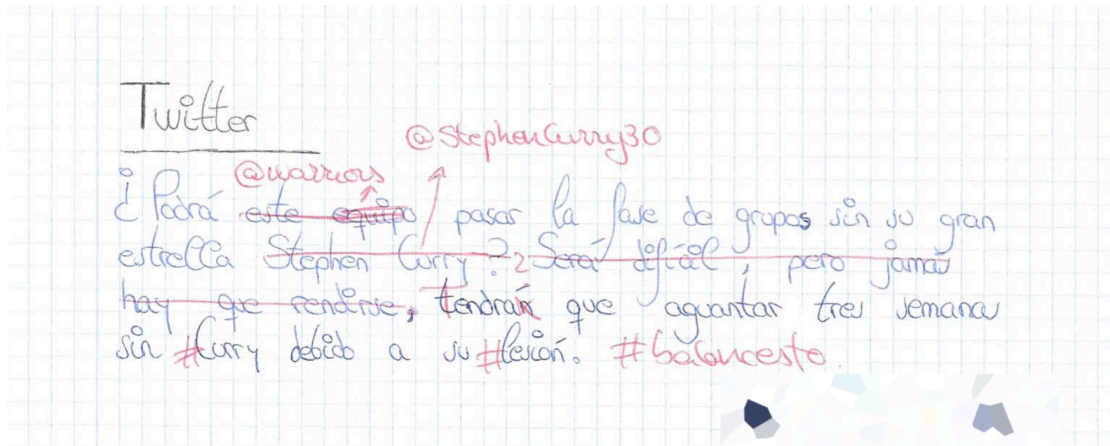 Twitter
@StephenCurry30
@warriors
¿Podrá este equipo pasar la fase de grupos sin su gran
estrella Stephen Curry? Será difícil, pero jamás
hay que rendirse, tendrán que aguantar tres semanas
sin #Curry debido a su #lesión. #baloncesto.